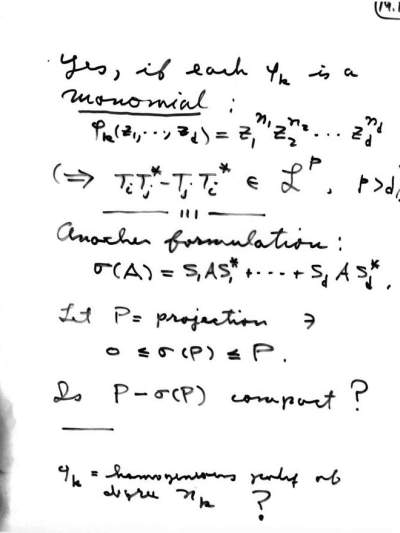 (14.1
Yes, if each φ_k is a
monomial :
φ_k(z_1, ..., z_d) = z_1^{n_1} z_2^{n_2} ... z_d^{n_d}
(⇒ T_i T_j^* - T_j T_i^* ∈ 𝓛^p, p > d,
Another formulation :
σ(A) = S_1 A S_1^* + ... + S_d A S_d^*,
Let P = projection ∋
0 ≤ σ(P) ≤ P.
Is P - σ(P) compact ?
φ_k = homogeneous of
degree n_k ?